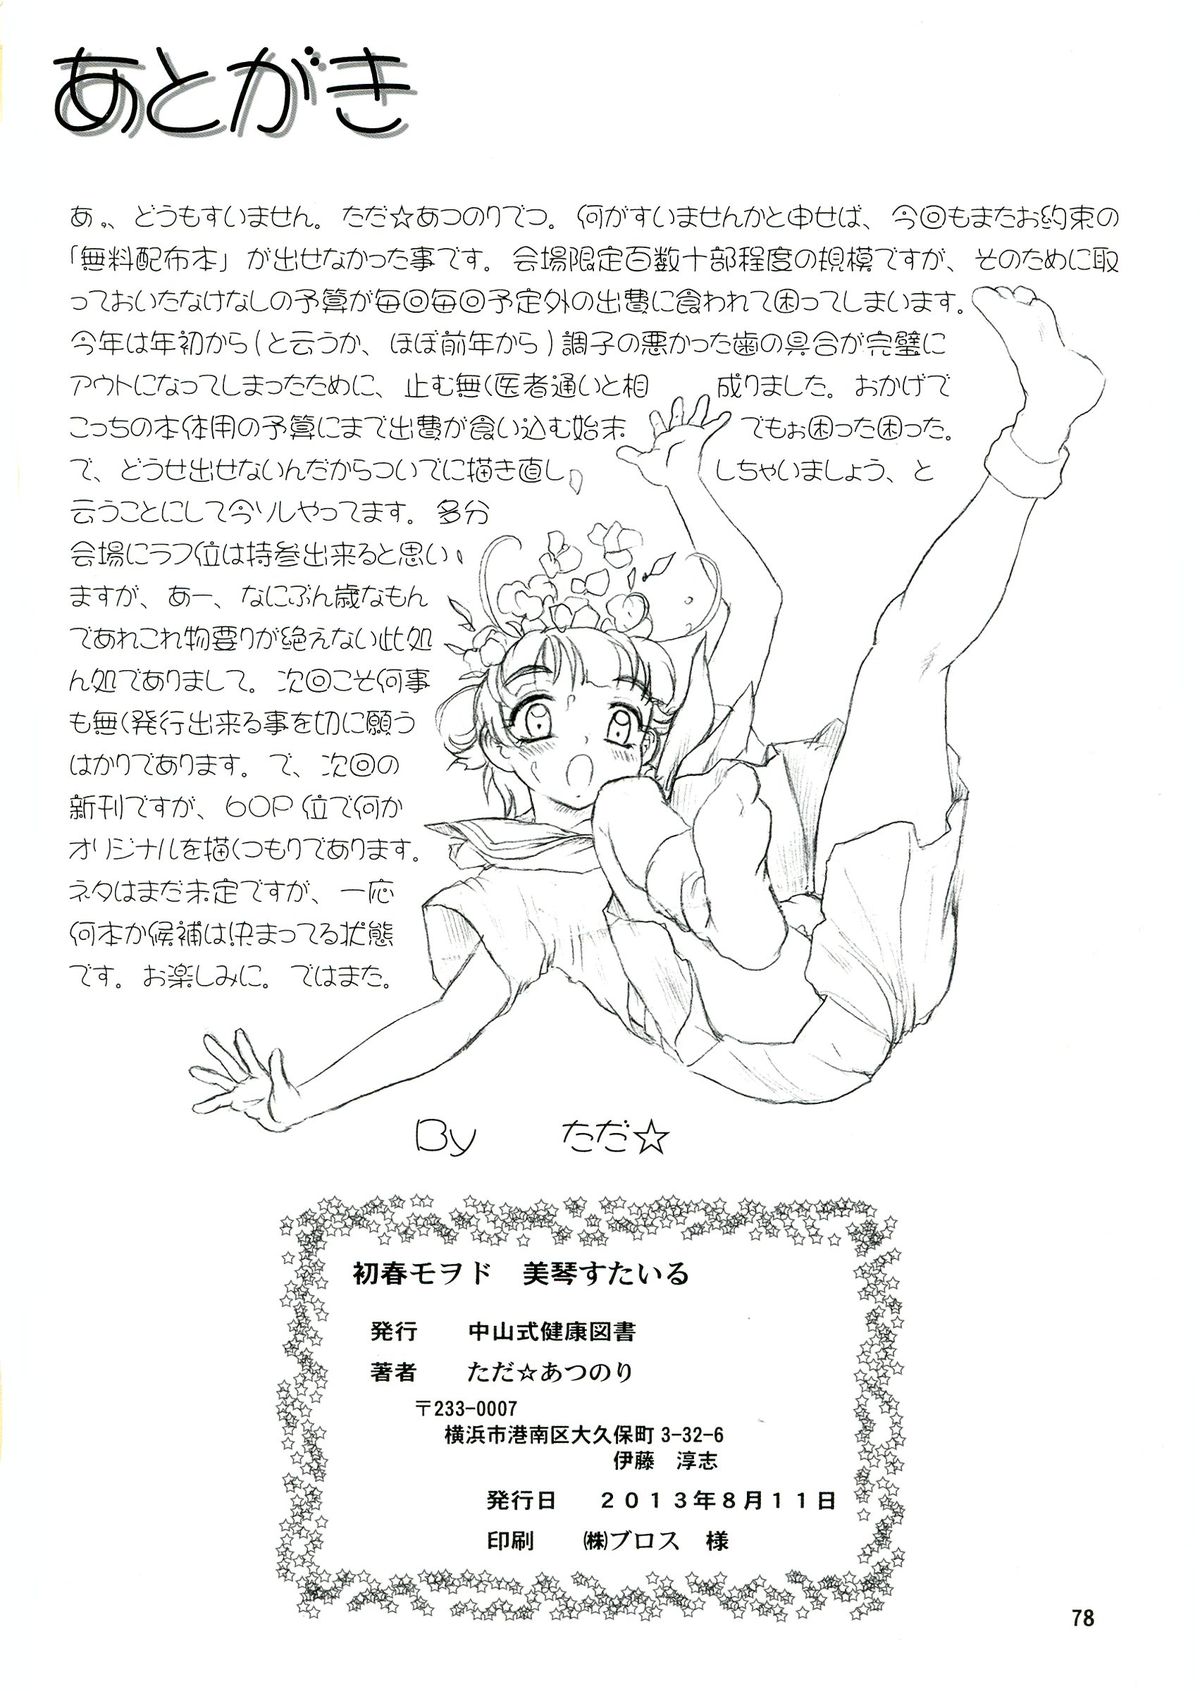 あとがき
あ。、どうもすいません。ただ☆あつのりでつ。何がすいませんかと申せば、今回もまたお約束の
「無料配布本」が出せなかった事です。会場限定百数十部程度の規模ですが、そのために取
っておいたなけなしの予算が毎回毎回予定外の出費に食われて困ってしまいます。
今年は年初から(と云うか、ほぼ前年から)調子の悪かった歯の具合が完璧に
アウトになってしまったために、止む無く医者通いと相成りました。おかげで
こっちの本体用の予算にまで出費が食い込む始末でもぉ困った困った。
で、どうせ出せないんだからついでに描き直ししちゃいましょう、と
云うことにして今ソレやってます。多分
会場にラフ位は持参出来ると思い
ますが、あー、なにぶん歳なもん
であれこれ物要りが絶えない此処
ん処でありまして。次回こそ何事
も無く発行出来る事を切に願う
はかりであります。で、次回の
新刊ですが、60P位で何か
オリジナルを描くつもりであります。
ネタはまだ未定ですが、一応
何本か候補は決まってる状態
です。お楽しみに。ではまた。
By ただ☆
初春モヲド 美琴すたいる
発行 中山式健康図書
著者 ただ☆あつのり
〒233-0007
横浜市港南区大久保町3-32-6
伊藤 淳志
発行日 2013年8月11日
印刷 ㈱ブロス 様
78